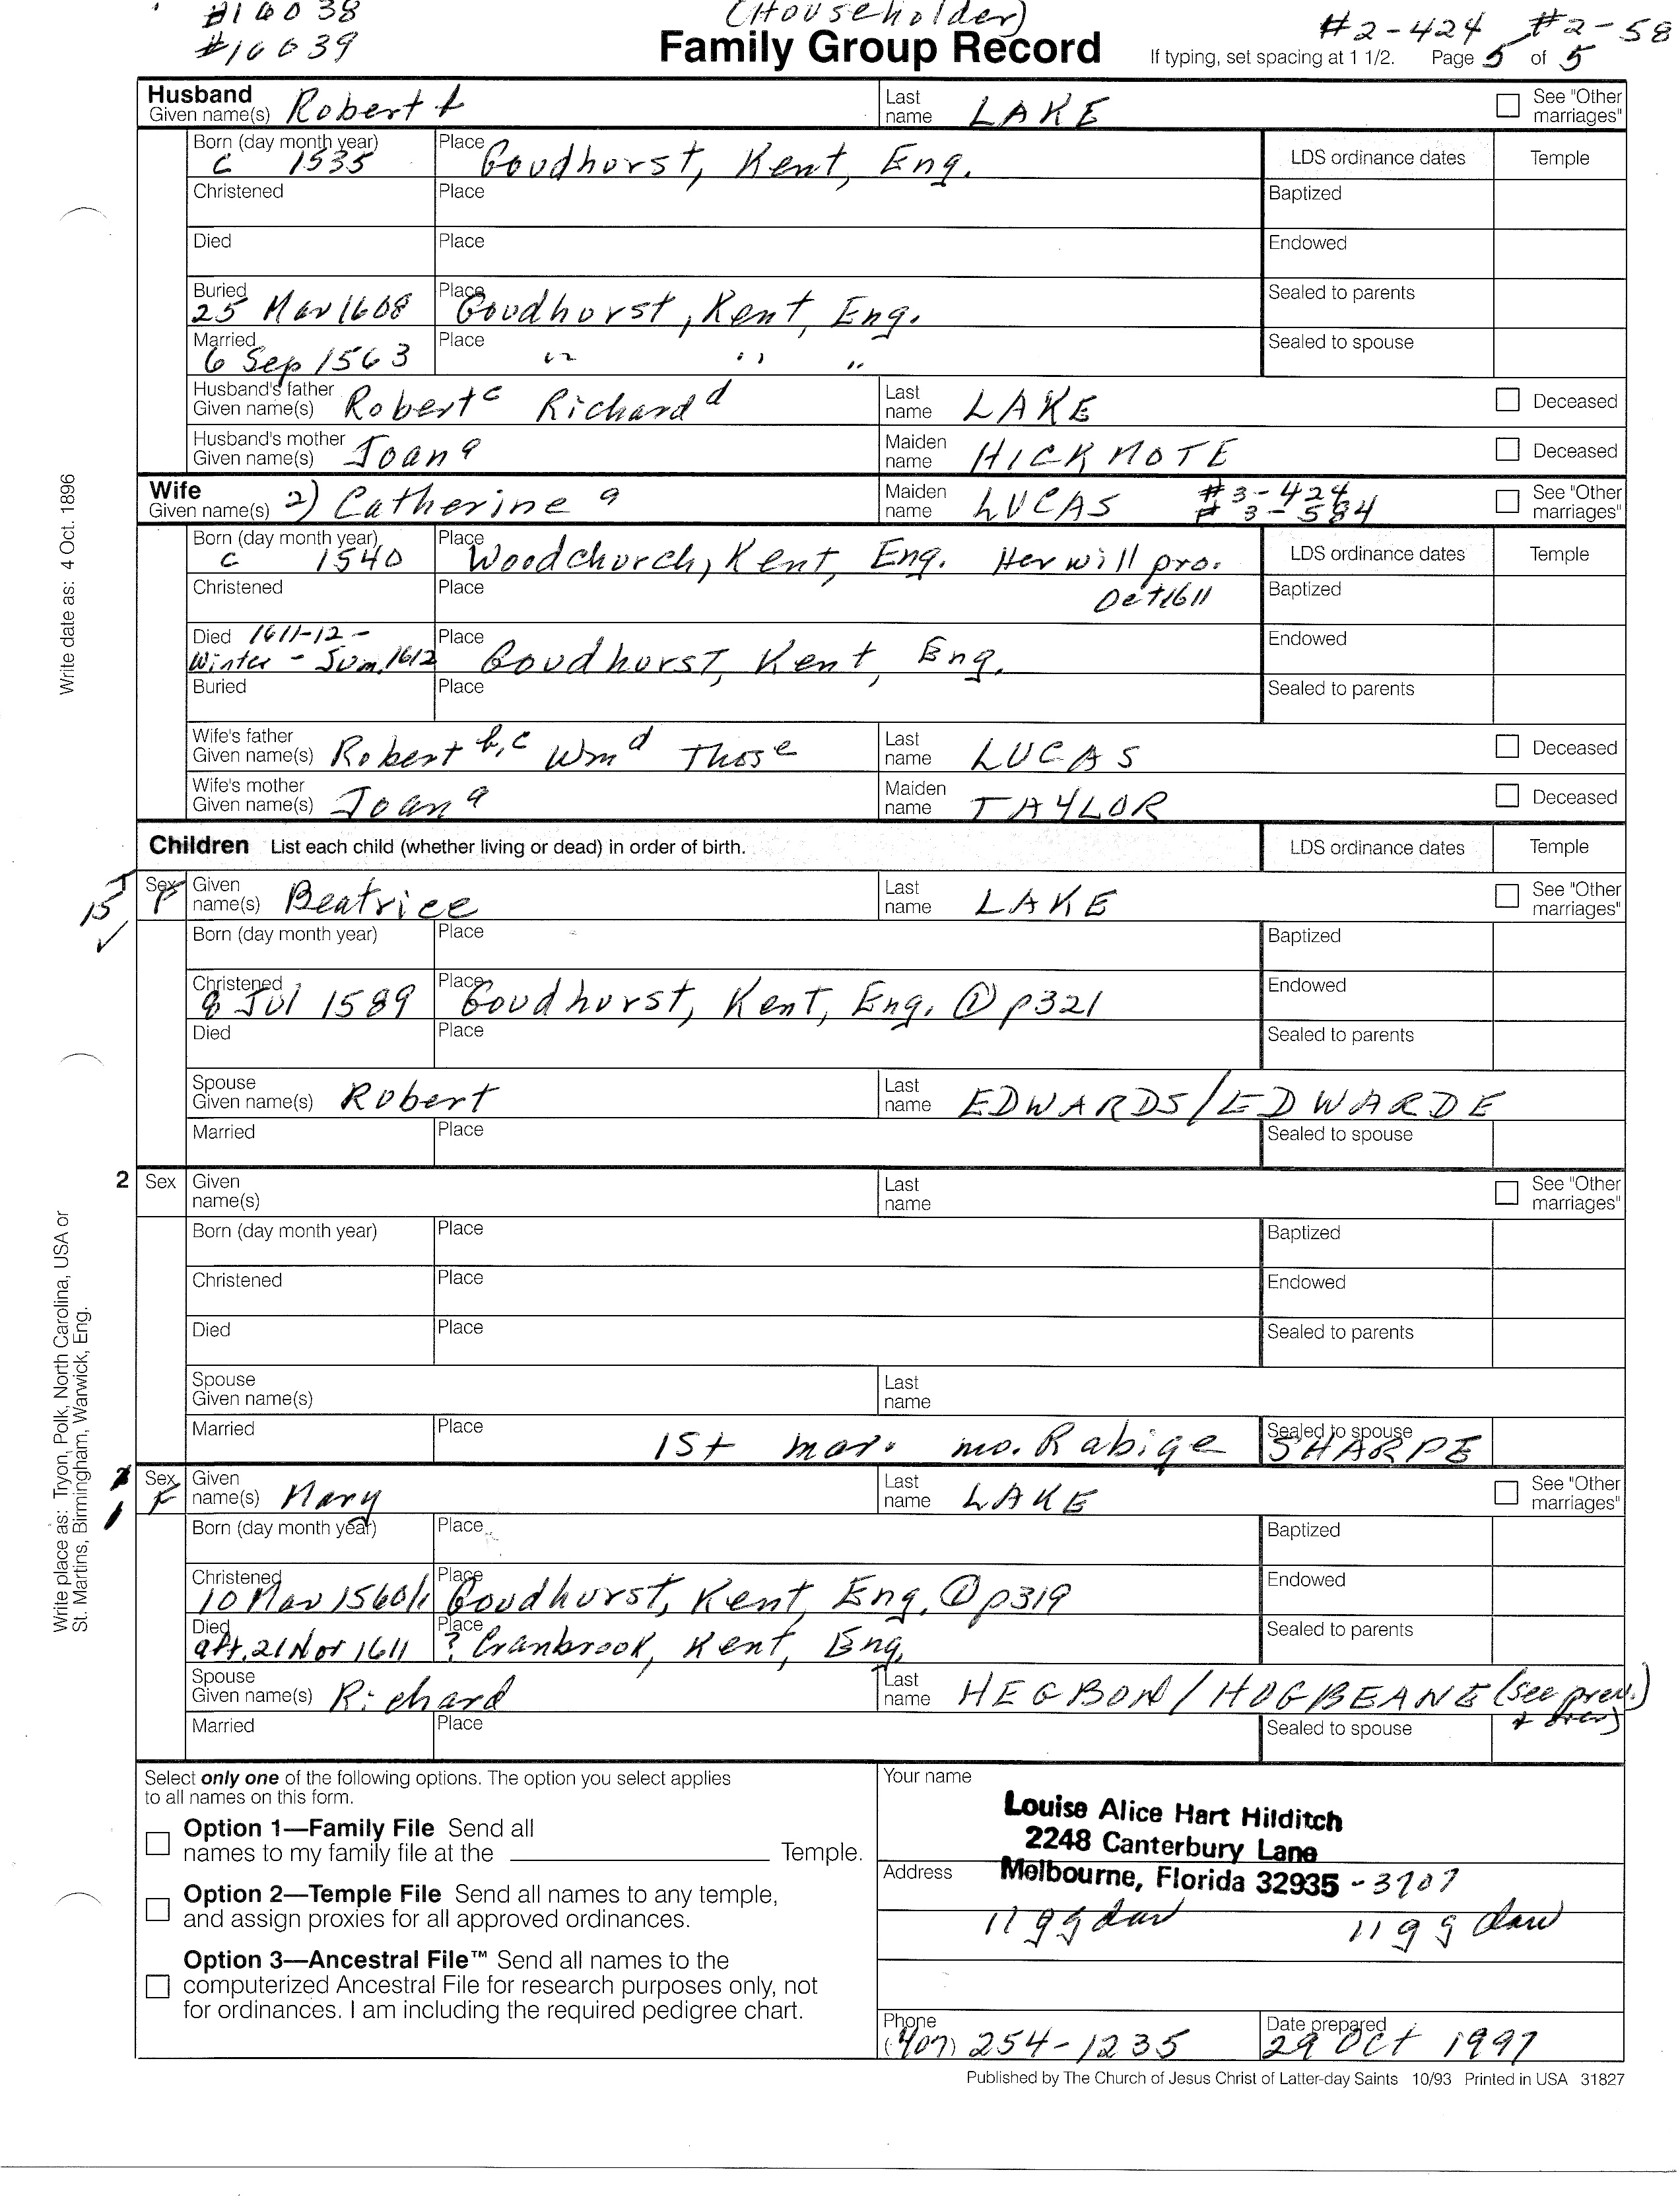 #16038
#16039
(Householder)
Family Group Record
#2-424 #2-58
If typing, set spacing at 1 1/2. Page 5 of 5
Husband
Given name(s) Robert f
Last name LAKE
See "Other marriages"
Born (day month year) c 1535
Place Goudhurst, Kent, Eng.
LDS ordinance dates
Temple
Christened
Place
Baptized
Died
Place
Endowed
Buried 25 Mar 1608
Place Goudhurst, Kent, Eng.
Sealed to parents
Married 6 Sep 1563
Place " " "
Sealed to spouse
Husband's father Given name(s) Robert c Richard d
Last name LAKE
Deceased
Husband's mother Given name(s) Joan a
Maiden name HICKMOTE
Deceased
Wife
Given name(s) 2) Catherine a
Maiden name LUCAS #3-424
#3-584
See "Other marriages"
Born (day month year) c 1540
Place Woodchurch, Kent, Eng. Her will pro.
Oct 1611
LDS ordinance dates
Temple
Christened
Place
Baptized
Died 1611-12-
Winter - Sum, 1612
Place Goudhurst, Kent, Eng.
Endowed
Buried
Place
Sealed to parents
Wife's father Given name(s) Robert b,c Wm d Thos e
Last name LUCAS
Deceased
Wife's mother Given name(s) Joan a
Maiden name TAYLOR
Deceased
Children List each child (whether living or dead) in order of birth.
LDS ordinance dates
Temple
15
Sex F
Given name(s) Beatrice
Last name LAKE
See "Other marriages"
Born (day month year)
Place
Baptized
Christened 8 Jul 1589
Place Goudhurst, Kent, Eng. ① p321
Endowed
Died
Place
Sealed to parents
Spouse Given name(s) Robert
Last name EDWARDS/EDWARDE
Married
Place
Sealed to spouse
2
Sex
Given name(s)
Last name
See "Other marriages"
Born (day month year)
Place
Baptized
Christened
Place
Endowed
Died
Place
Sealed to parents
Spouse Given name(s)
Last name
Married
Place
Sealed to spouse
1st mar. mo. Rabige SHARPE
1
Sex F
Given name(s) Mary
Last name LAKE
See "Other marriages"
Born (day month year)
Place
Baptized
Christened 10 Mar 1560/1
Place Goudhurst, Kent, Eng. ① p319
Endowed
Died aft. 21 Nov 1611
Place ? Cranbrook, Kent, Eng.
Sealed to parents
Spouse Given name(s) Richard
Last name HEGBON/HOGBEANE (see prev.
Married
Place
Sealed to spouse
Select only one of the following options. The option you select applies
to all names on this form.
Option 1—Family File Send all
names to my family file at the Temple.
Option 2—Temple File Send all names to any temple,
and assign proxies for all approved ordinances.
Option 3—Ancestral File™ Send all names to the
computerized Ancestral File for research purposes only, not
for ordinances. I am including the required pedigree chart.
Your name
Louise Alice Hart Hilditch
2248 Canterbury Lane
Address
Melbourne, Florida 32935 -3707
11 g g dau 11 g g dau
Phone (407) 254-1235
Date prepared 29 Oct 1997
Published by The Church of Jesus Christ of Latter-day Saints 10/93 Printed in USA 31827
Write date as: 4 Oct. 1896
Write place as: Tryon, Polk, North Carolina, USA or
St. Martins, Birmingham, Warwick, Eng.